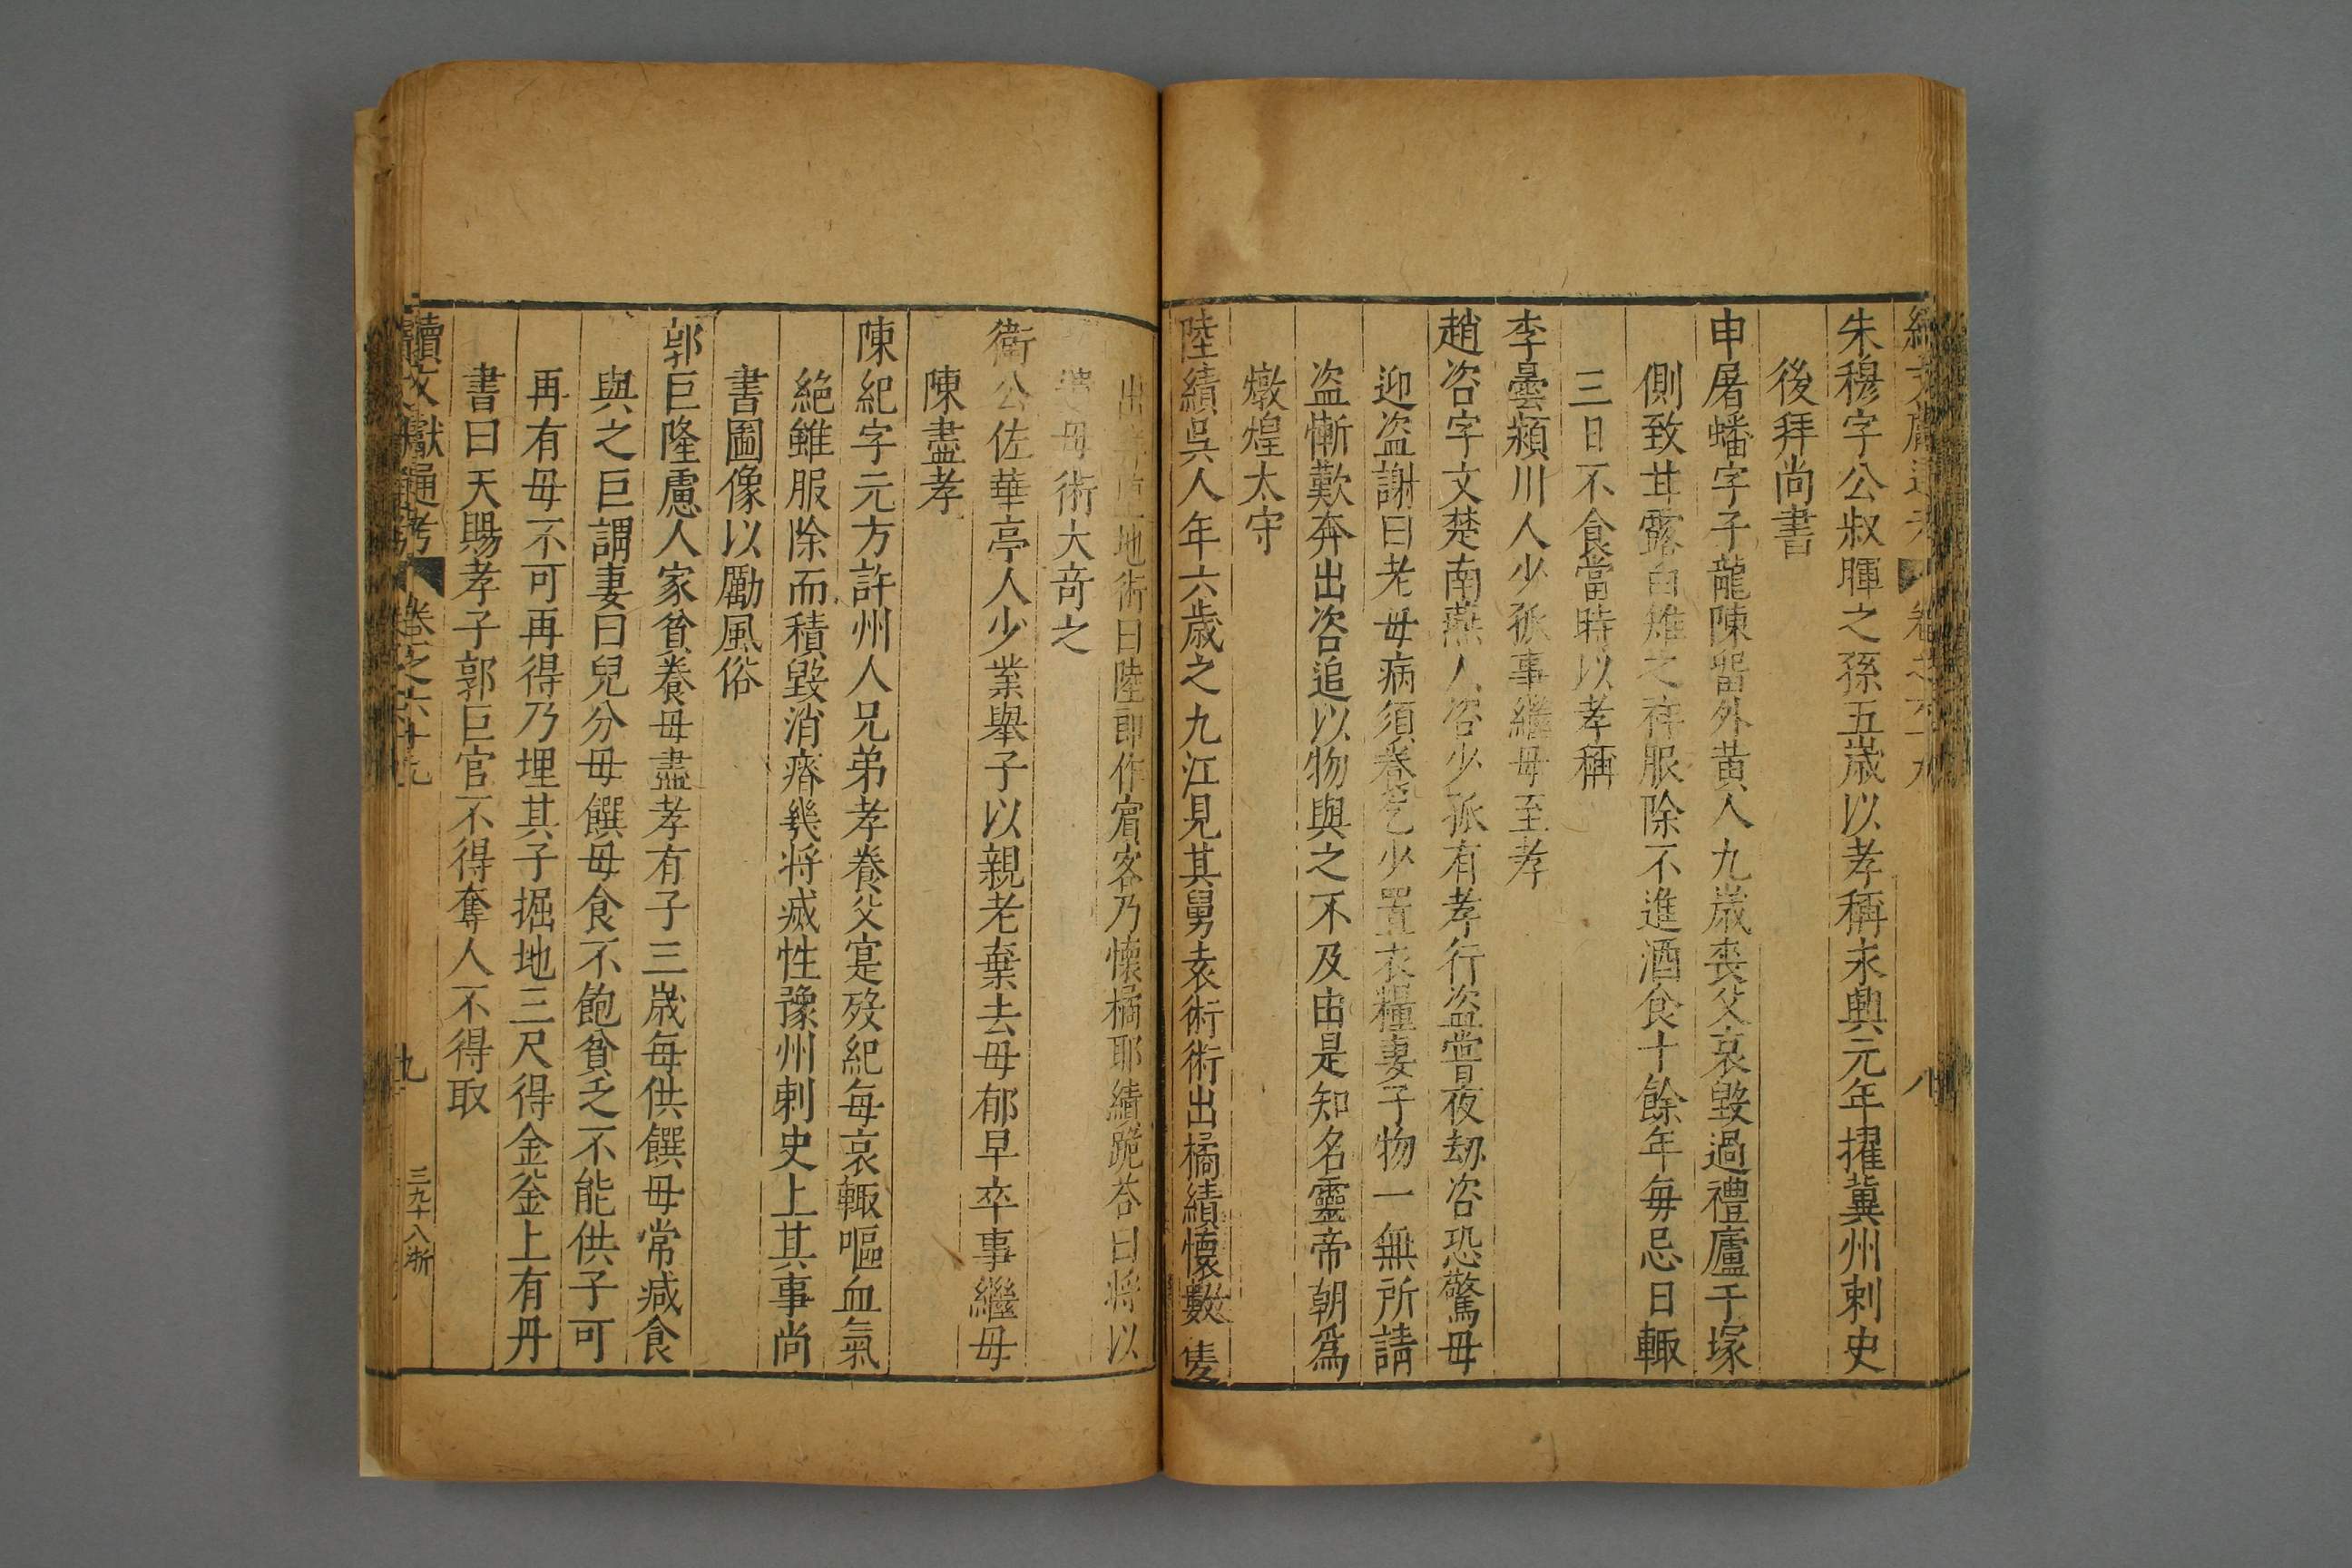 朱穆字公叔暉之孫五歲以孝稱永興元年擢冀州刺史
後拜尚書
申屠蟠字子龍陳畱外黃人九歲喪父哀毀過禮廬于塚
側致甘露白雉之祥服除不進酒食十餘年每忌日輒
三日不食當時以孝稱
李曇潁川人少孤事繼母至孝
趙咨字文楚南燕人咨少孤有孝行盜嘗夜劫咨恐驚母
迎盜謝曰老母病須養乞少置衣糧妻子物一無所請
盜慚歎奔出咨追以物與之不及由是知名靈帝朝爲
燉煌太守
陸績吳人年六歲之九江見其舅袁術術出橘績懷數隻
出 地術曰陸郎作賓客乃懷橘耶績跪荅曰將以
母術大奇之
衛公佐華亭人少業舉子以親老棄去母郁早卒事繼母
陳盡孝
陳紀字元方許州人兄弟孝養父寔歿紀每哀輒嘔血氣
絶雖服除而積毀消瘠幾將滅性豫州刺史上其事尚
書圖像以勵風俗
郭巨隆慮人家貧養母盡孝有子三歲每供饌母常減食
與之巨謂妻曰兒分母饌母食不飽貧乏不能供子可
再有母不可再得乃埋其子掘地三尺得金釜上有丹
書曰天賜孝子郭巨官不得奪人不得取
續文獻通考 卷之六十九 九 三九十八浙